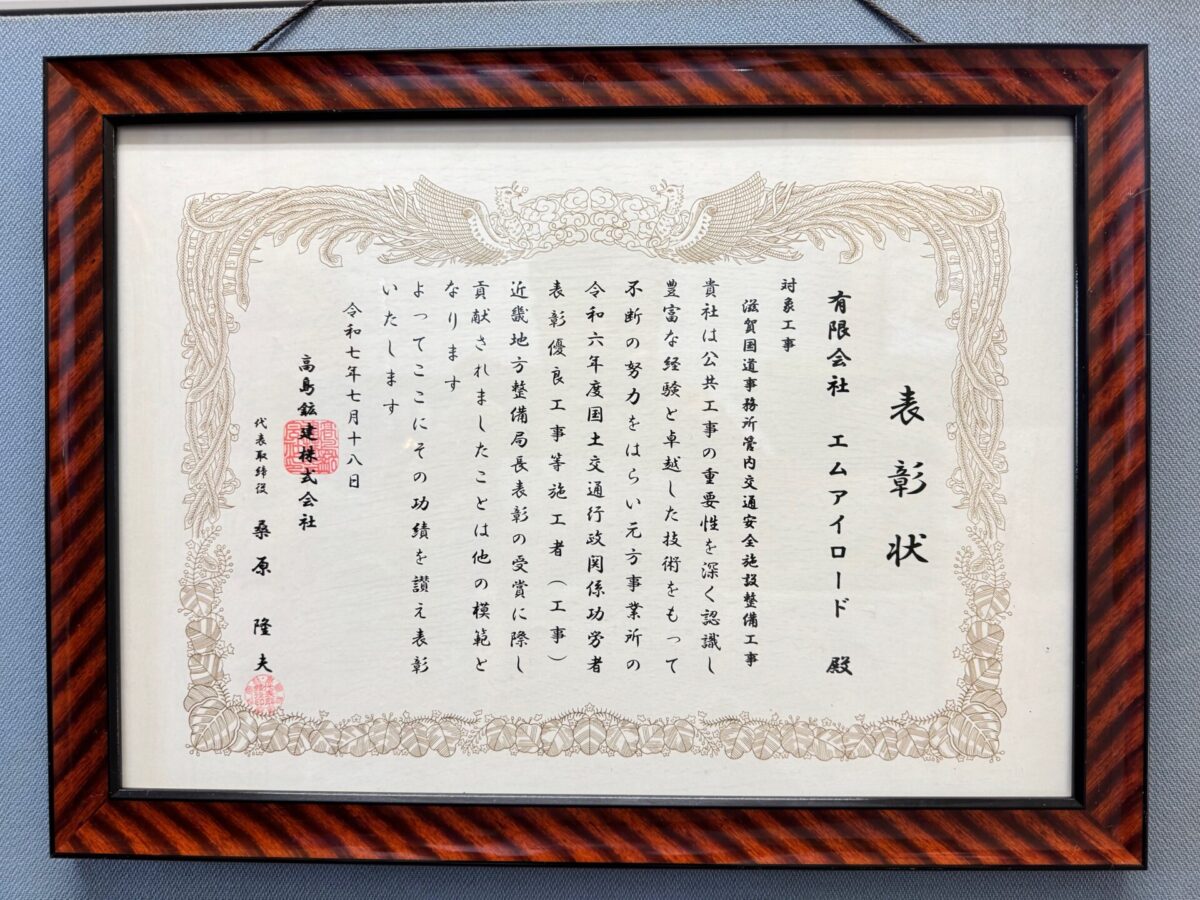 表彰状
有限会社 エムアイロード 殿
対象工事
滋賀国道事務所管内交通安全施設整備工事
貴社は公共工事の重要性を深く認識し
豊富な経験と卓越した技術をもって
不断の努力をはらい元方事業所の
令和六年度国土交通行政関係功労者
表彰優良工事等施工者(工事)
近畿地方整備局長表彰の受賞に際し
貢献されましたことは他の模範と
なります
よってここにその功績を讃え表彰
いたします
令和七年七月十八日
高島鉱建株式会社
代表取締役 桑原 隆夫